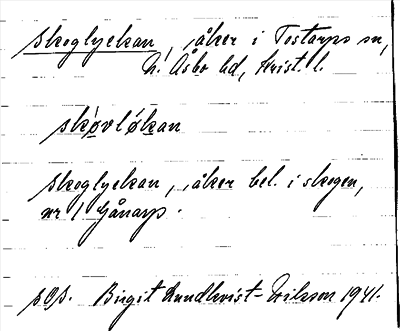 Skoglyckan, åker i Tostarps sn,
N. Åsbo hd, Krist. l.
skóvlókan
Skoglyckan, åker bel. i skogen,
nr 1 Gånarp.
Birgit Lundkvist-Erikson 1941.